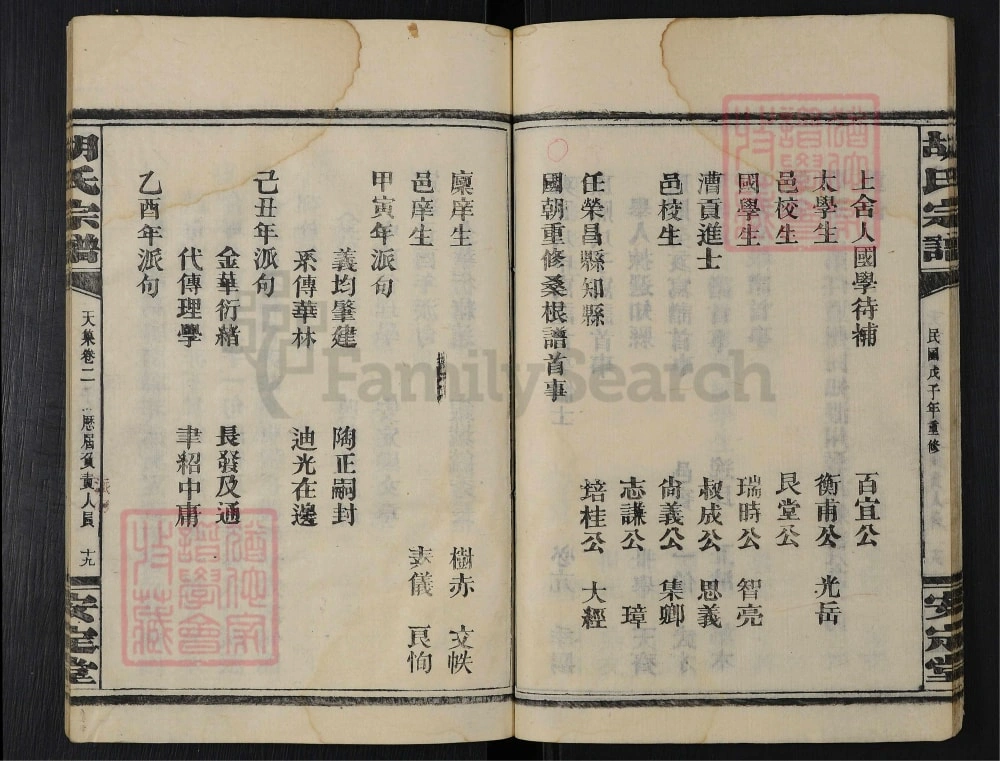 胡氏宗譜
民國戊子年重修
安定堂
上舍人國學待補 百宜公
太學生 衡甫公 光岳
邑校生 艮堂公
國學生 瑞時公 智亮
漕貢進士 叔成公 思義
邑校生 尙義公 集卿
志謙公 璋
任榮昌縣知縣 培桂公 大經
國朝重修桑根譜首事
廩庠生 樹赤 文帙
邑庠生 表儀 艮恂
甲寅年派句
義均肇建 陶正嗣封
系傳華林 迪光在邊
己丑年派句
金華衍緒 長發及通
代傳理學 聿紹中庸
乙酉年派句
胡氏宗譜
天集卷二 歷屆負責人員 十九
安定堂
FamilySearch